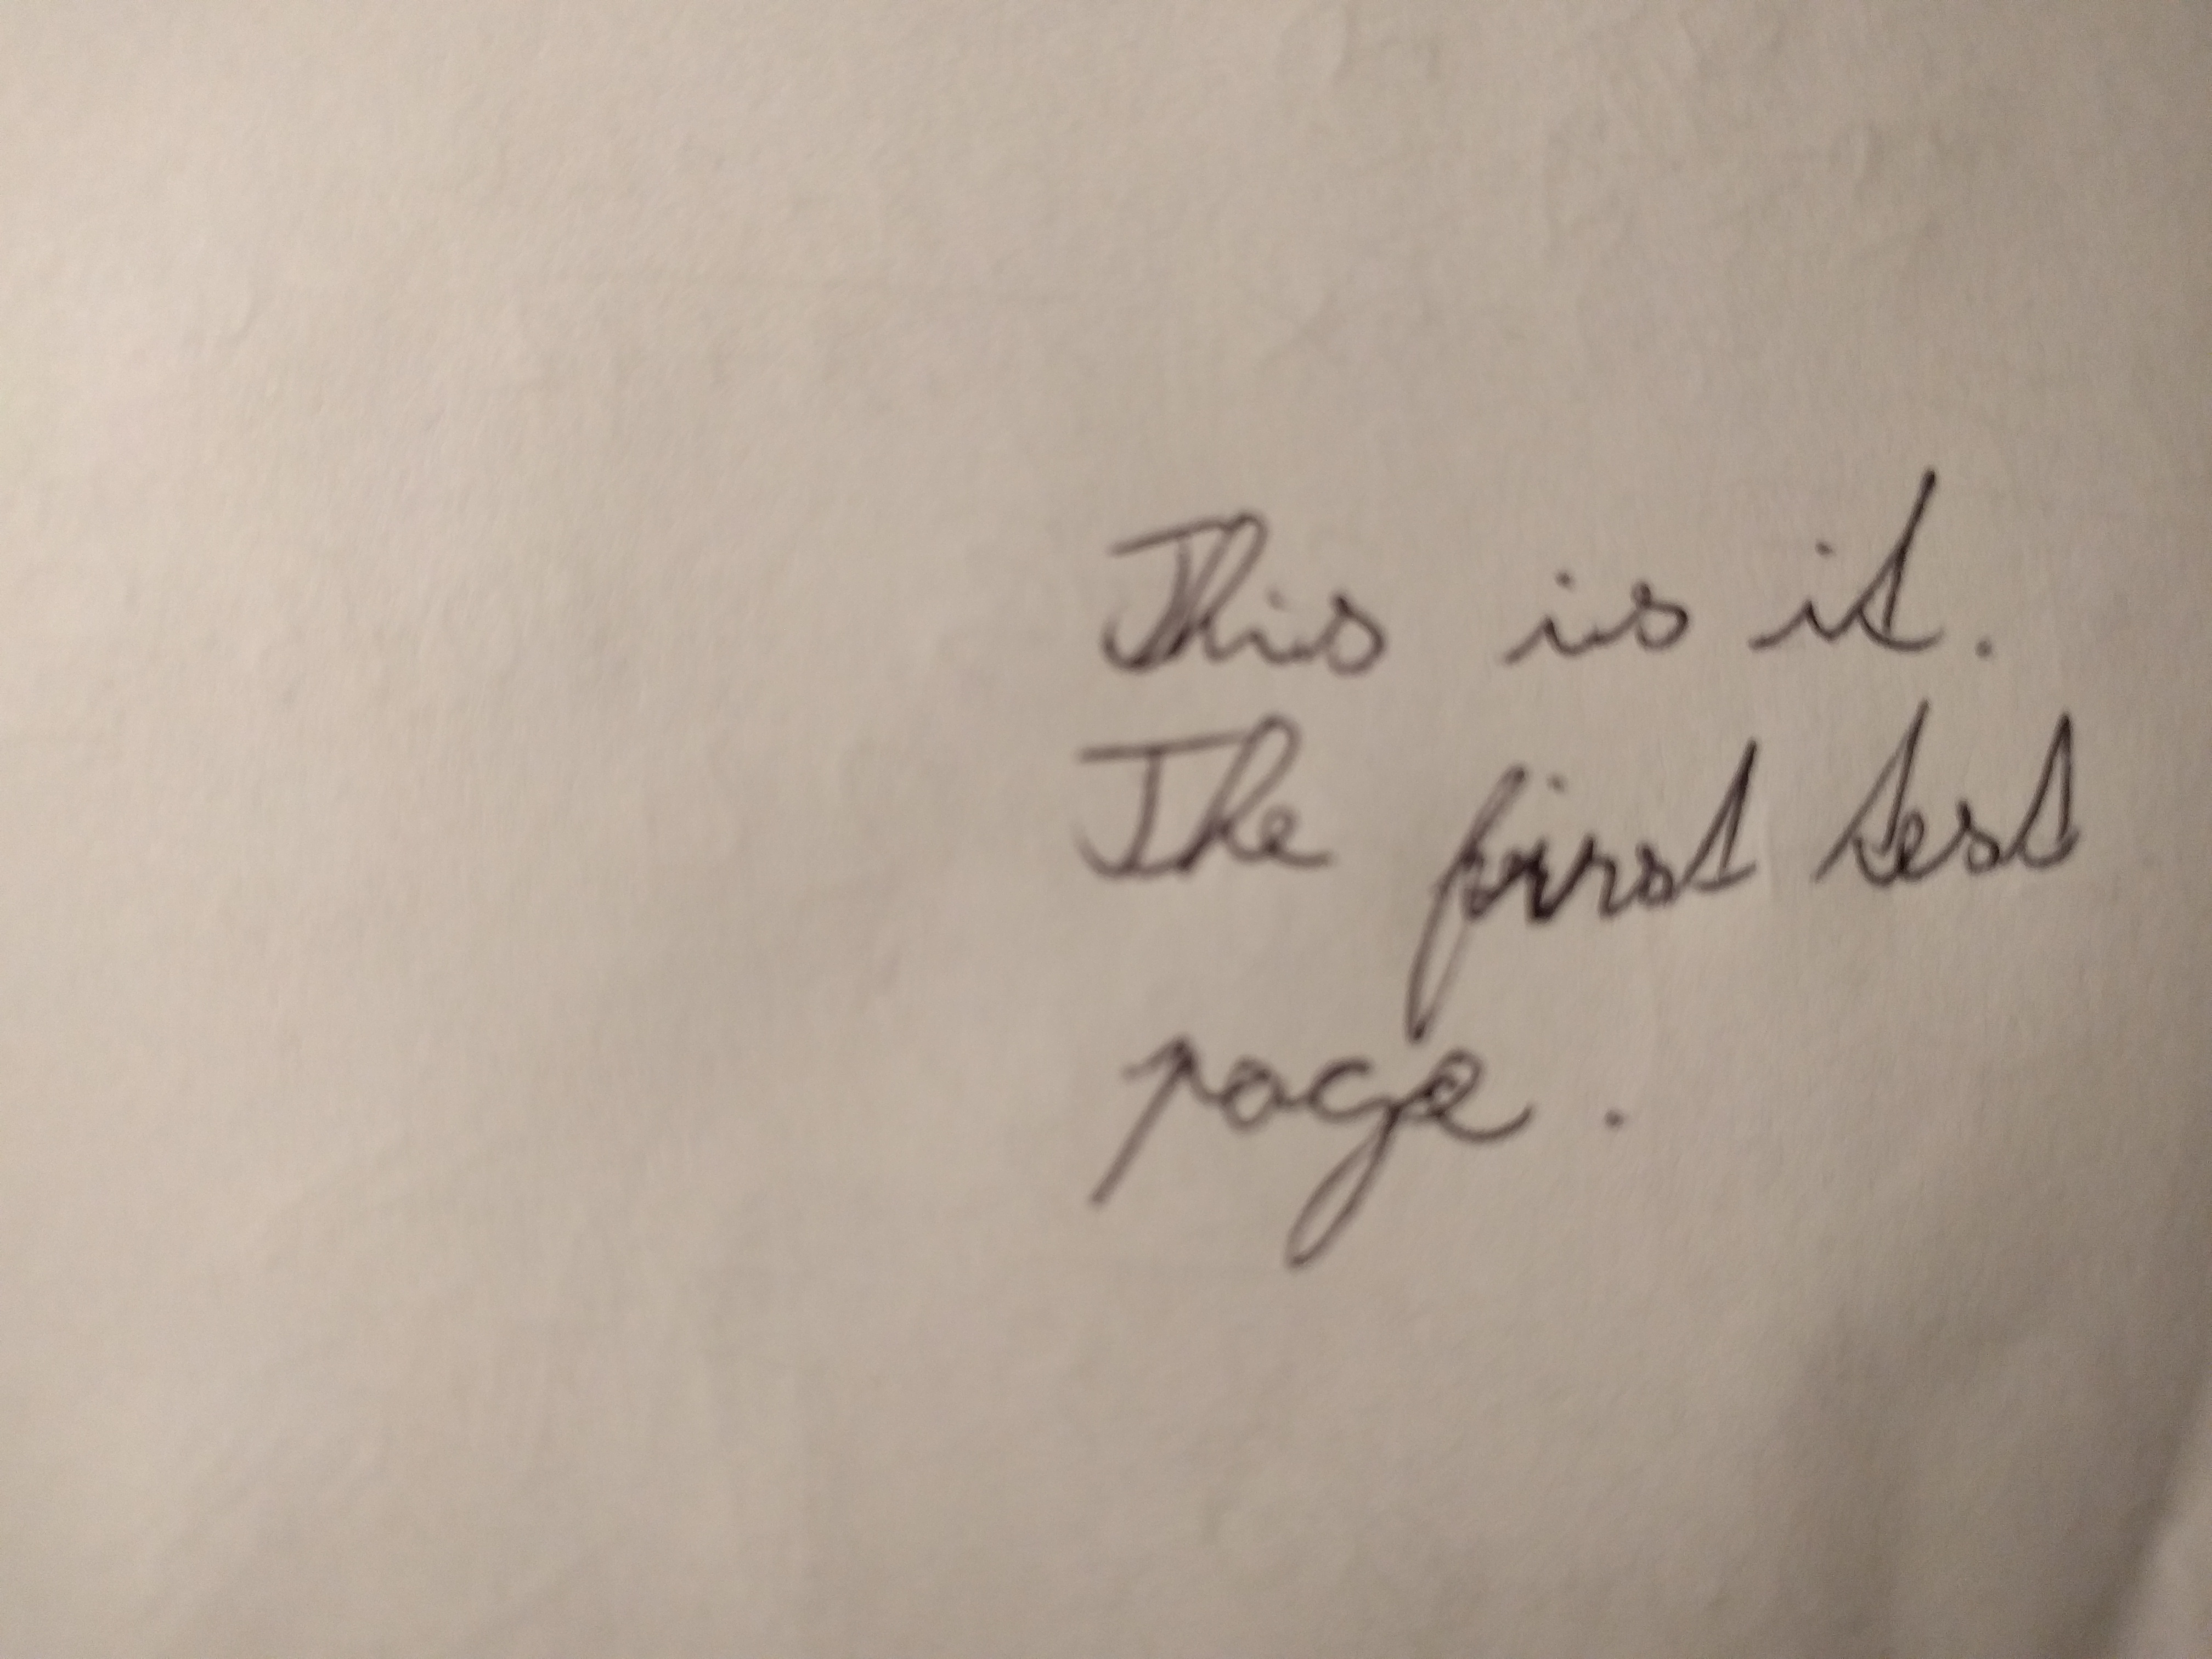 This is it.
The first test
page.